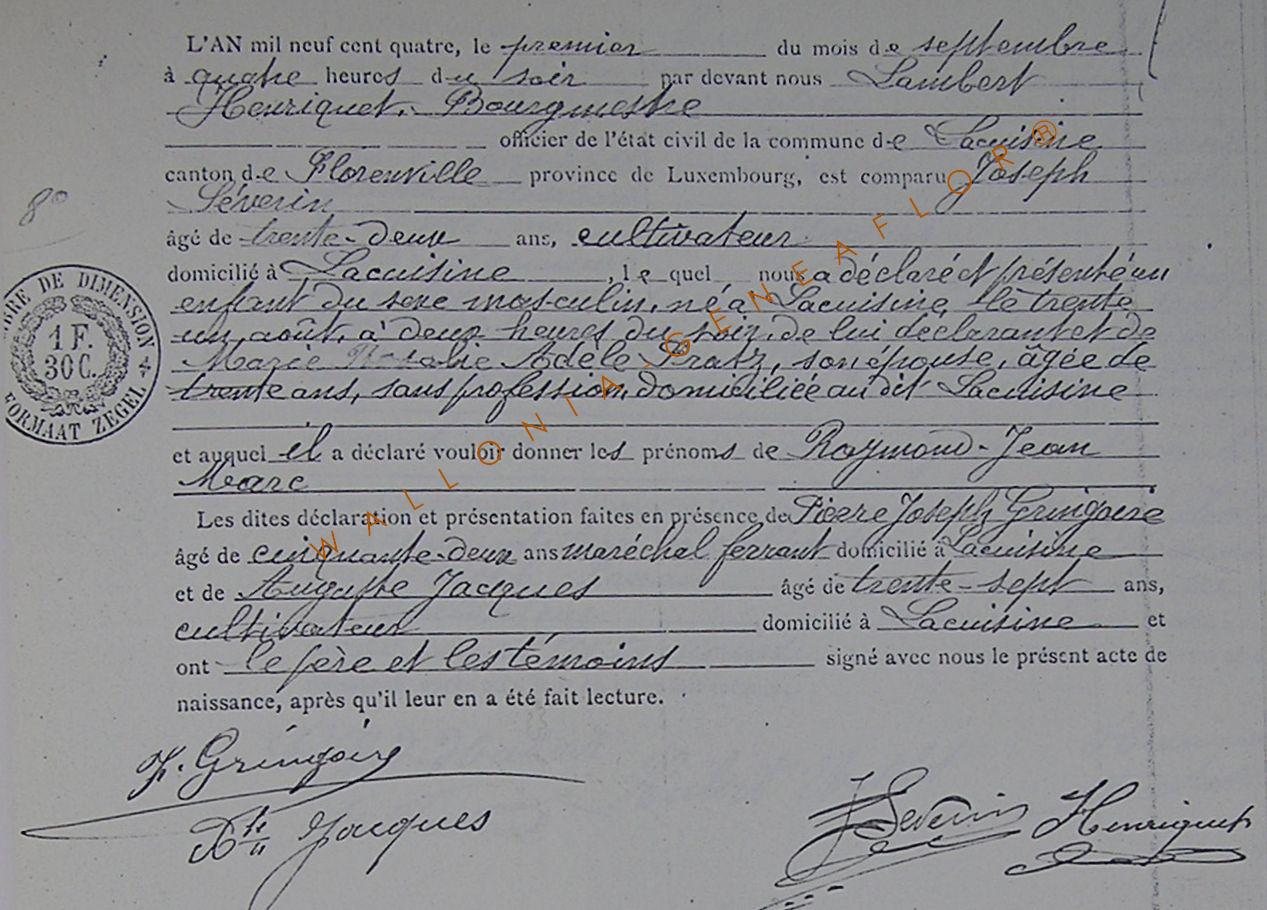 L'AN mil neuf cent quatre, le premier du mois de septembre
à quatre heures du soir par devant nous Lambert
Henriquet, Bourgmestre
officier de l'état civil de la commune de Lacuisine
canton de Florenville province de Luxembourg, est comparu Joseph
Séverin
8°
âgé de trente-deux ans, cultivateur
domicilié à Lacuisine, le quel nous a déclaré et présenté un
enfant du sexe masculin, né à Lacuisine le trente
un août, à deux heures du soir, de lui déclarant et de
Marie Adèle, son épouse, âgée de
trente ans, sans profession, domiciliée au dit Lacuisine
et auquel il a déclaré vouloir donner les prénoms de Raymond-Jean
Marc
Les dites déclaration et présentation faites en présence de Pierre Joseph Gringoire
âgé de cinquante-deux ans maréchal ferrant domicilié à Lacuisine
et de Auguste Jacques âgé de trente-sept ans,
cultivateur domicilié à Lacuisine et
ont le père et les témoins signé avec nous le présent acte de
naissance, après qu'il leur en a été fait lecture.
J. Gringoire
Jacques
J Severin Henriquet
DE DIMENSION
1 F.
30 C.
FORMAAT ZEGEL
WALLONIA-GENEAFLOR®